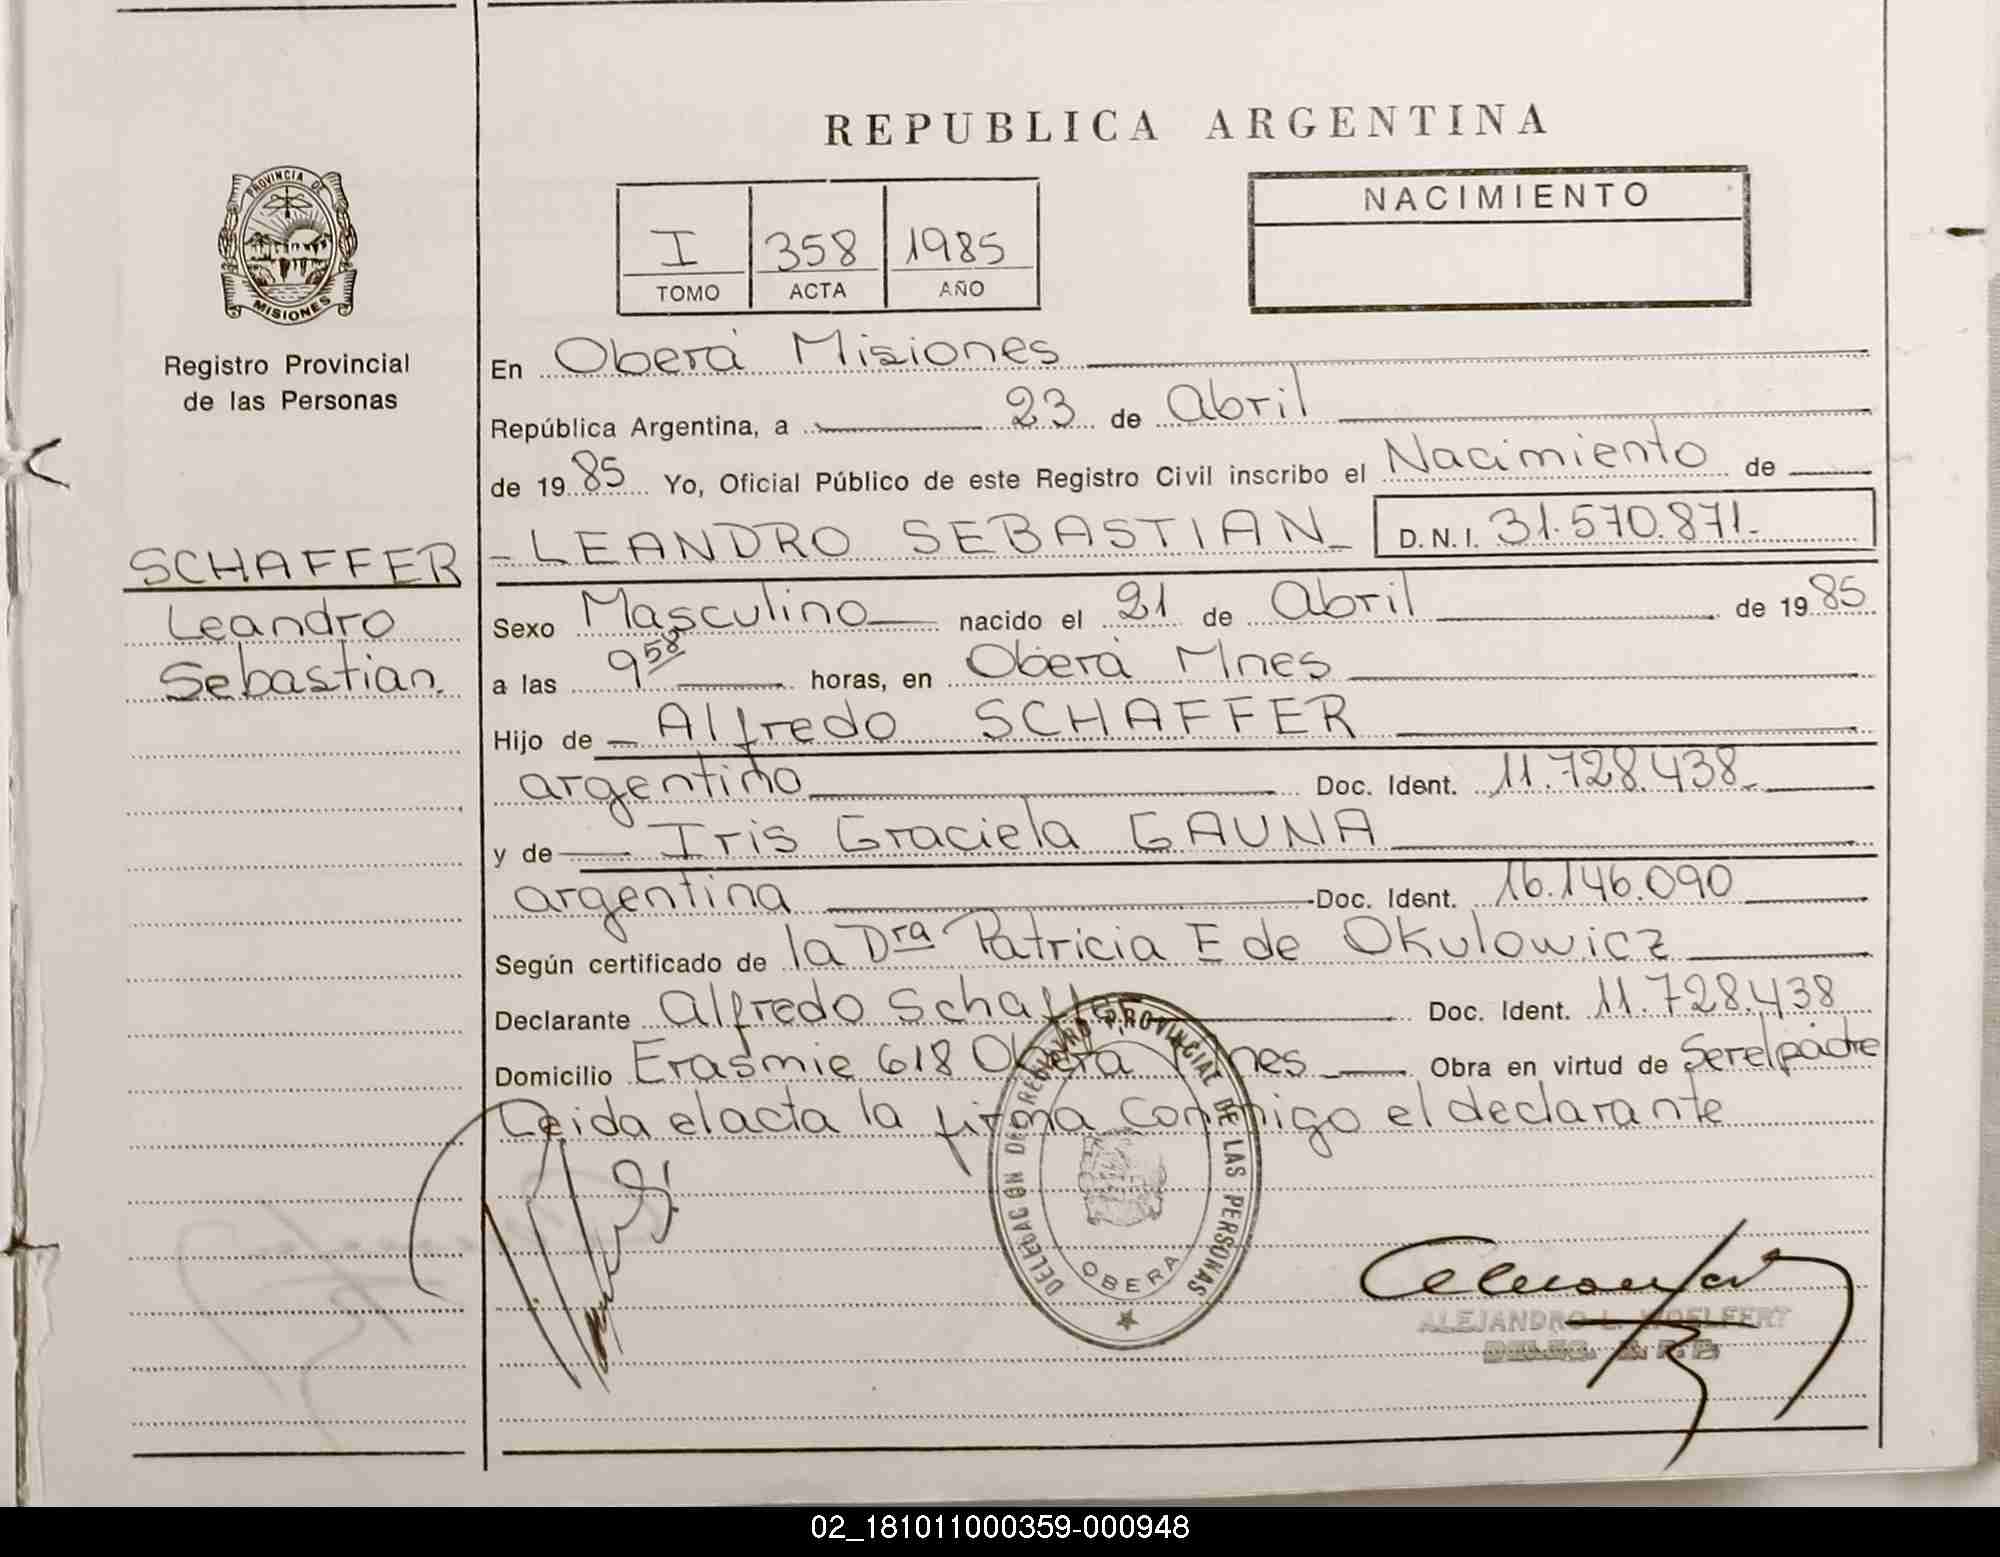 REPUBLICA ARGENTINA
PROVINCIA DE
MISIONES
Registro Provincial
de las Personas
I 358 1985
TOMO ACTA AÑO
NACIMIENTO
En Oberá Misiones
República Argentina, a 23 de Abril
de 1985 Yo, Oficial Público de este Registro Civil inscribo el Nacimiento de
- LEANDRO SEBASTIAN - D.N.I. 31.570.871.-
SCHAFFER
Leandro
Sebastian.
Sexo Masculino nacido el 21 de Abril de 1985
a las 9 58 horas, en Oberá Mnes
Hijo de Alfredo SCHAFFER
argentino Doc. Ident. 11.728.438
y de Iris Graciela GAUNA
argentina Doc. Ident. 16.146.090
Según certificado de la Dra Patricia E de Okulowicz
Declarante Alfredo Schaffer Doc. Ident. 11.728.438
Domicilio Erasmie 618 Oberá Mnes Obra en virtud de Ser el padre
Leida el acta la firma conmigo el declarante
DELEGACION DEL REGISTRO PROVINCIAL DE LAS PERSONAS
OBERA
ALEJANDRO L. WOELFERT
02_181011000359-000948